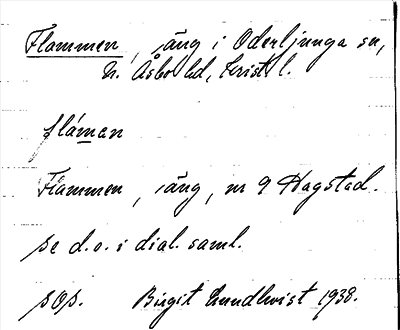 Flammen, äng i Oderljunga sn,
N. Åsbo hd, Krist. l.
flåman
Flammen, äng, nr 9 Hagstad.
se d.o. i dial. saml.
sop. Birgit Lundkvist 1938.